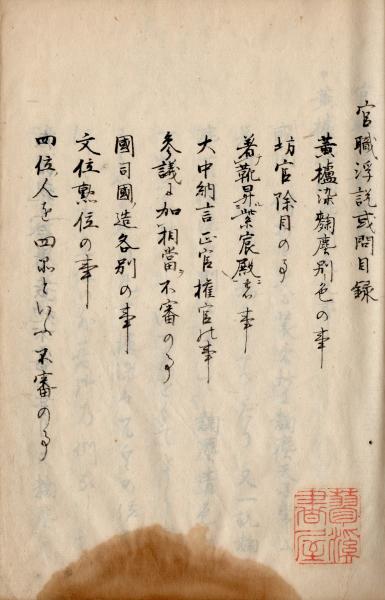 官職浮説或問目録
黄櫨染麹塵別色の事
坊官除目の事
著靴昇紫宸殿者事
大中納言正官権官の事
参議は加相當不審の事
國司國造各別の事
文位勲位の事
四位人を四品といふ不審の事
曽渓書屋